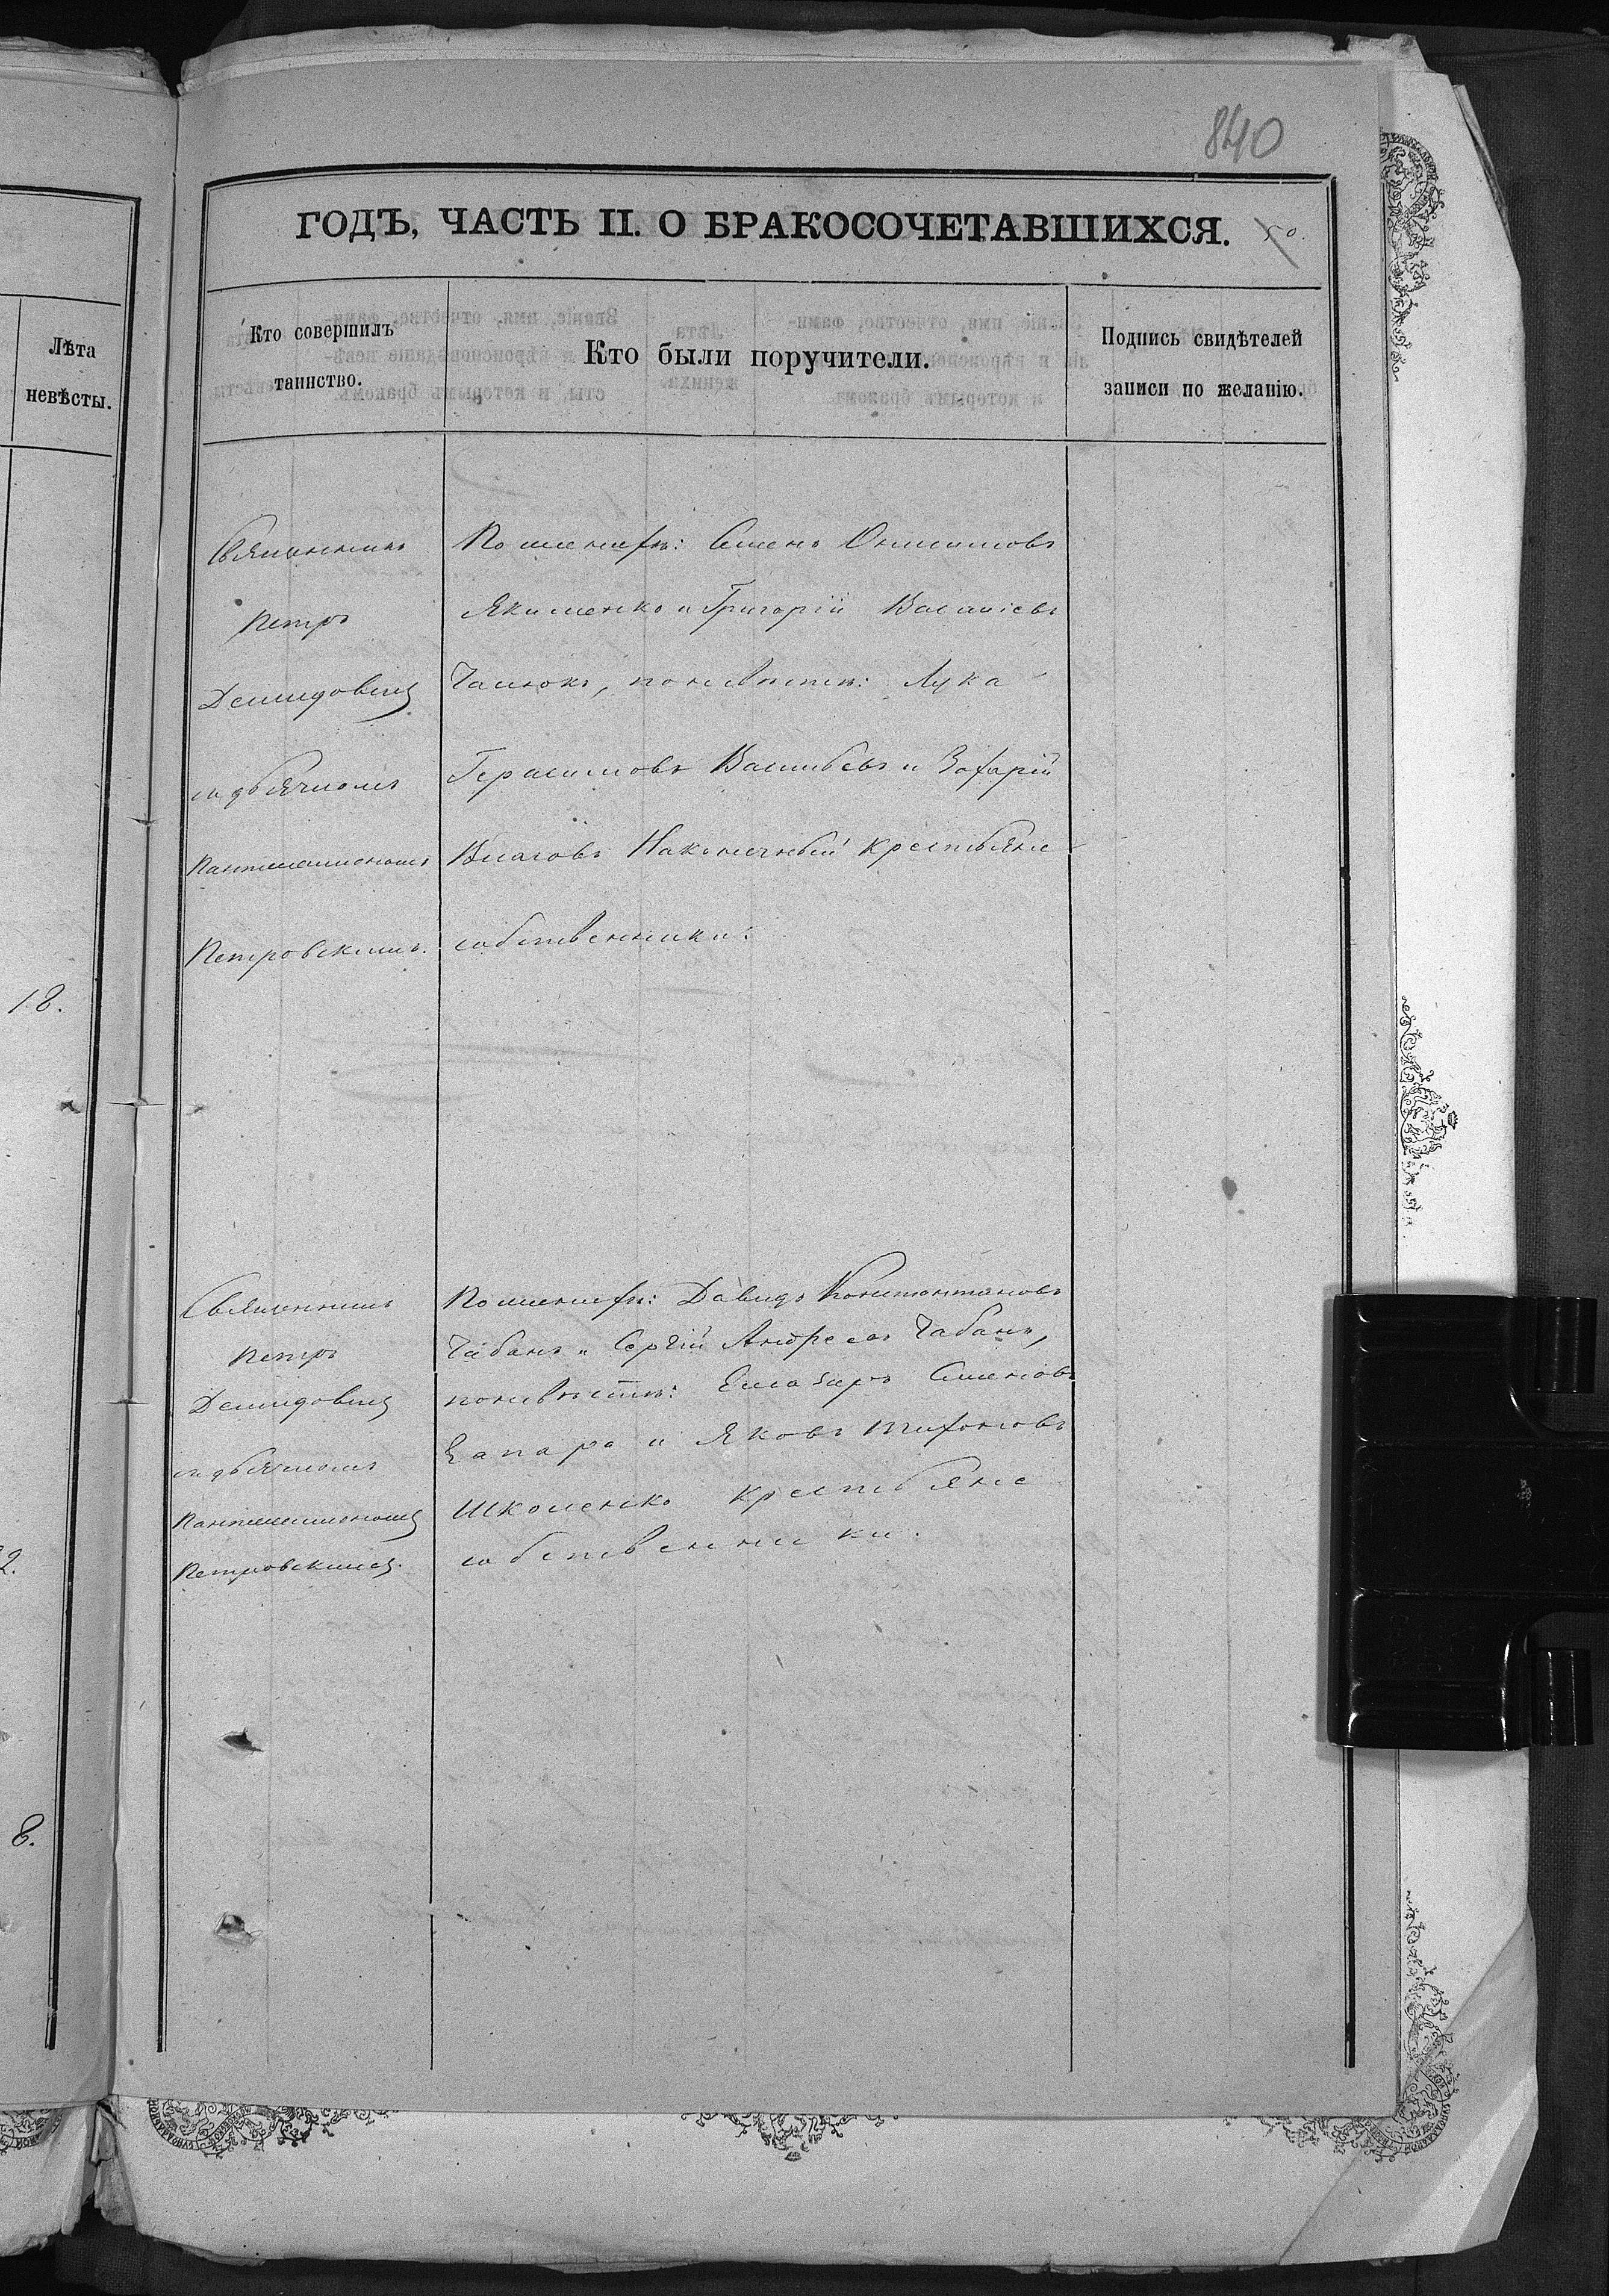 840
ГОДЪ, ЧАСТЬ II. О БРАКОСОЧЕТАВШИХСЯ.
50.
Лѣта
невѣсты.
Кто совершилъ
таинство.
Кто были поручители.
Подпись свидѣтелей
записи по желанію.
18.
8.
Священникъ
Петръ
Демидовичъ
съ дьячкомъ
Пантелеимономъ
Петровскимъ.
По женихѣ: Семенъ Онисимовъ
Якименко и Григорій Василіевъ
Чалюкъ, по невѣстѣ: Лука
Герасимовъ Васильевъ и Захарій
Власовъ Наконечный крестьяне
собственники.
Священникъ
Петръ
Демидовичъ
съ дьячкомъ
Пантелеимономъ
Петровскимъ.
По женихѣ: Давидъ Константиновъ
Чабанъ и Сергій Андреевъ Чабанъ,
по невѣстѣ: Елеазаръ Семеновъ
и Яковъ Тихоновъ
Школенко крестьяне
собственники.